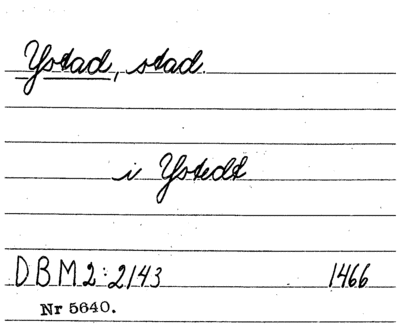 Ystad, stad.
i Ystedt
DBM2:2143 1466
Nr 5640.